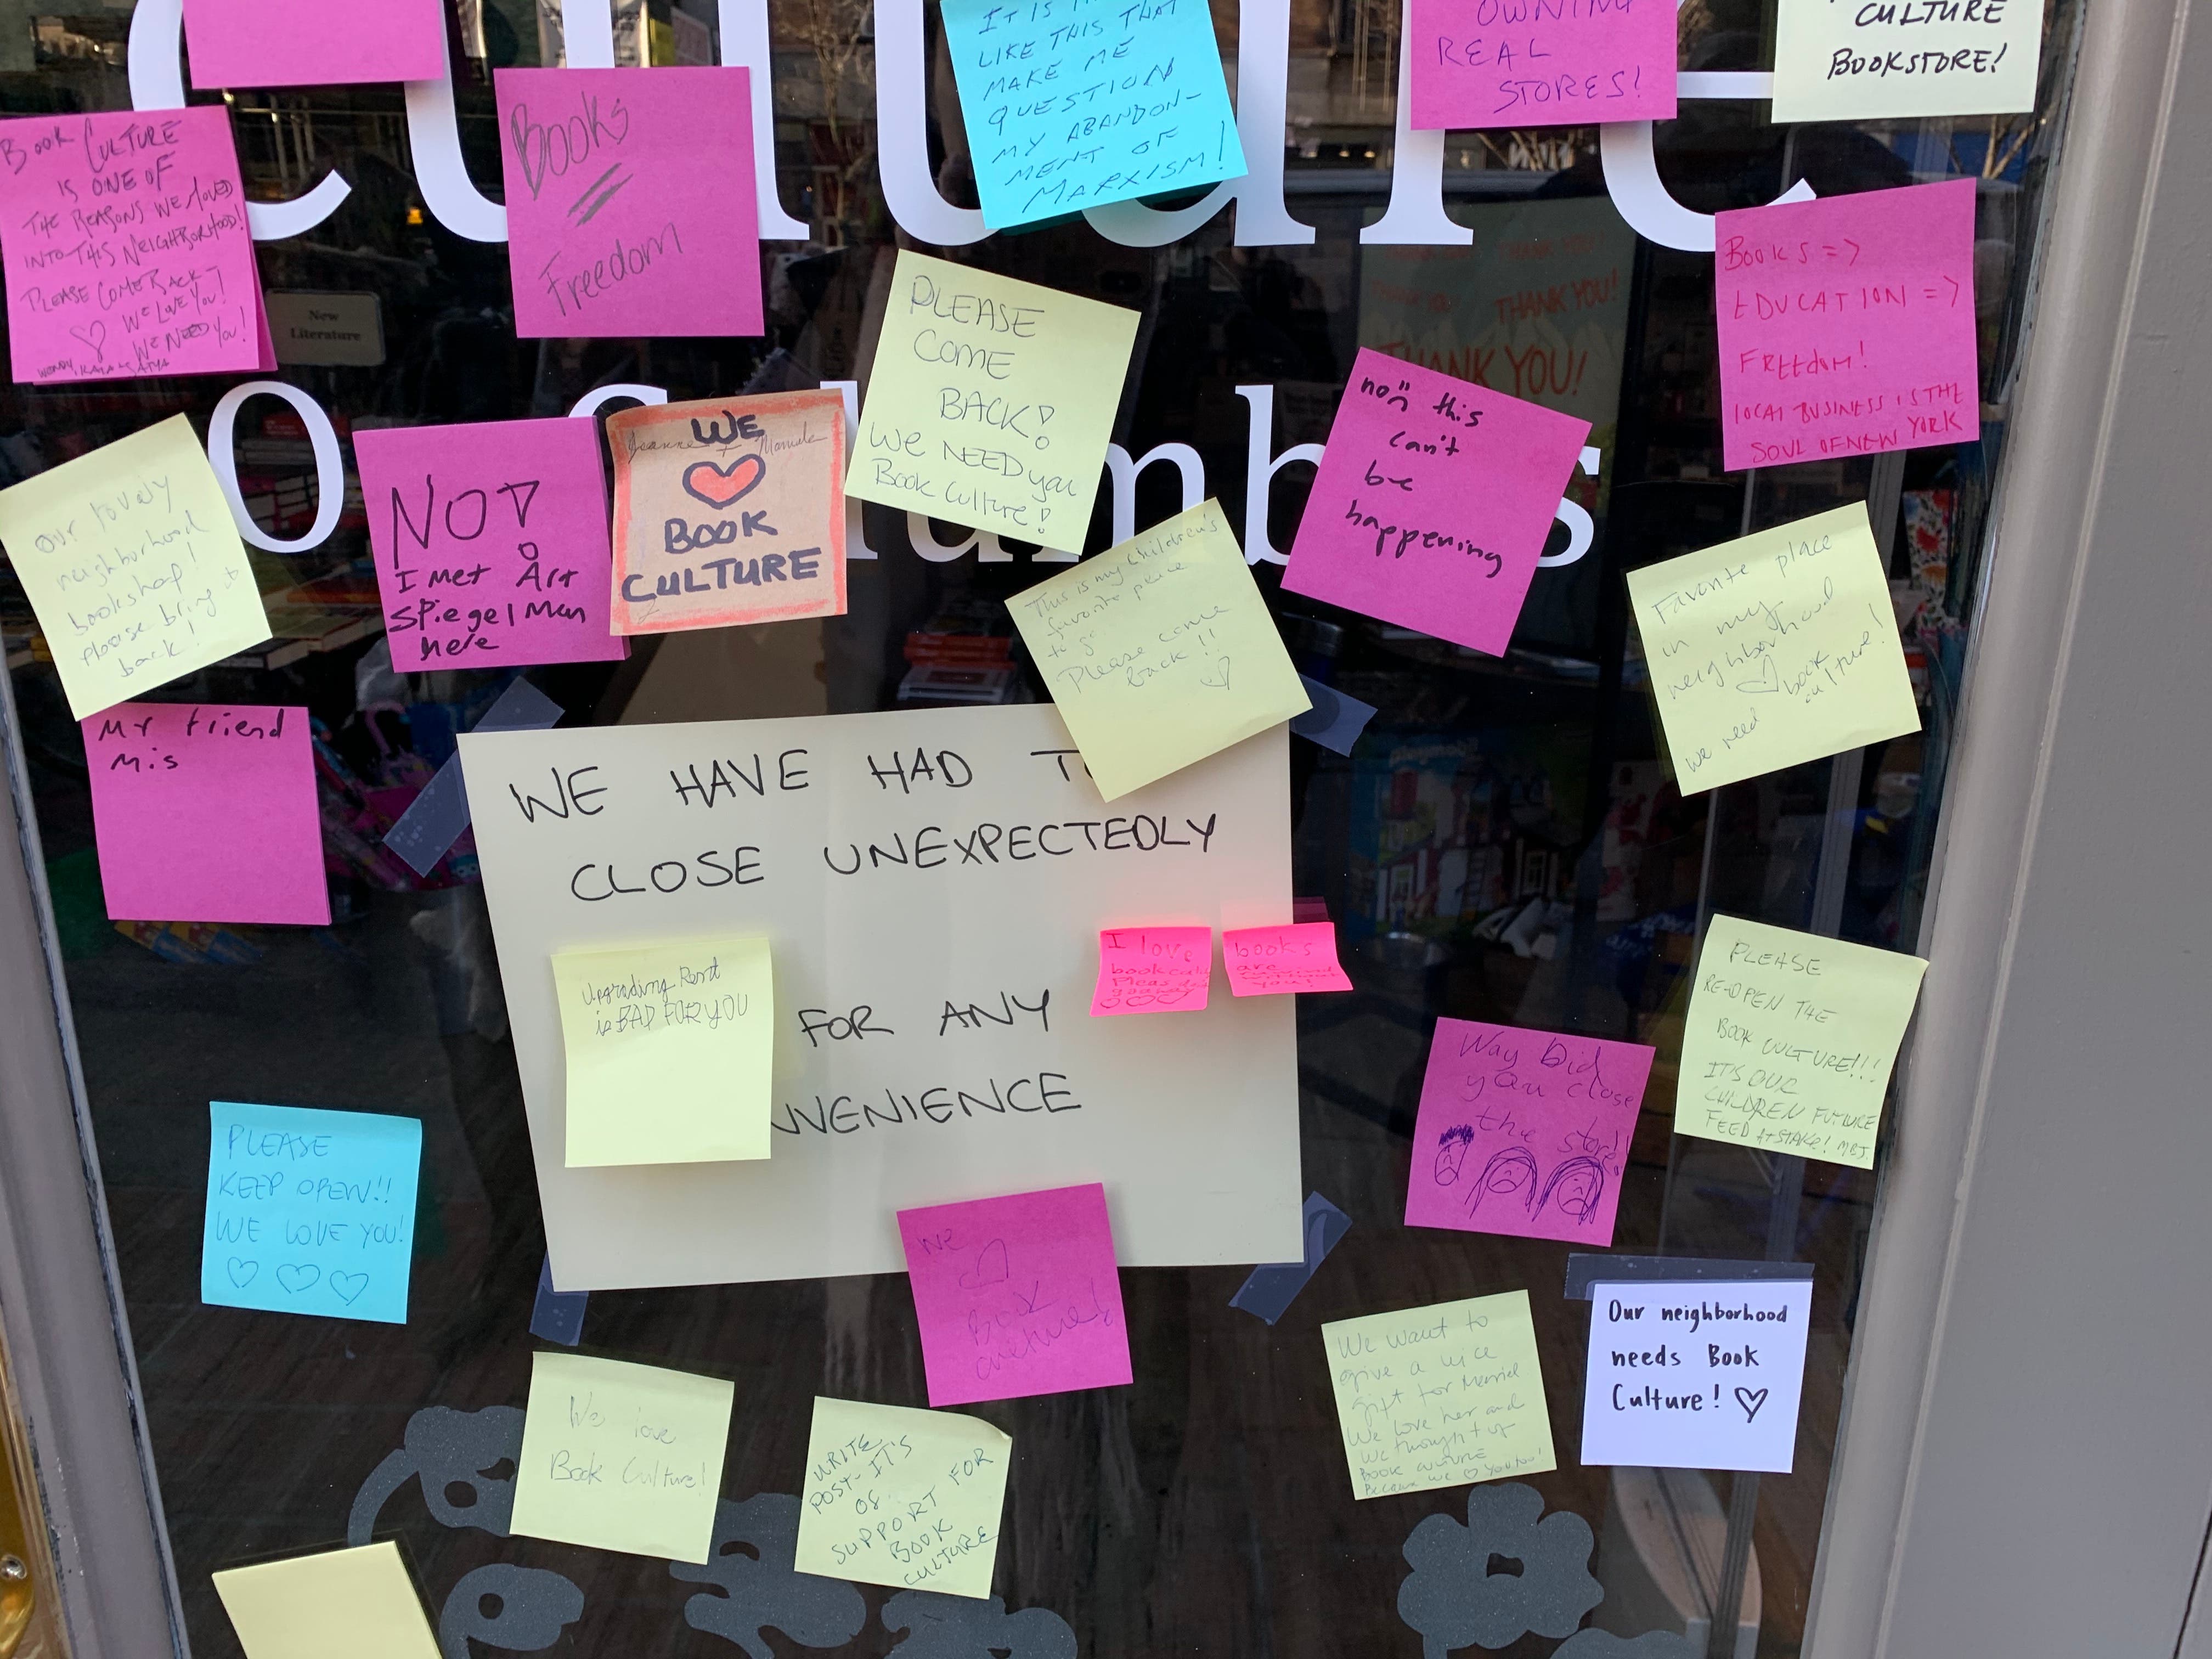 culture
IT IS
LIKE THIS THAT
MAKE ME
QUESTION
MY ABANDON-
MENT OF
MARXISM!
OWNING
REAL
STORES!
CULTURE
BOOKSTORE!
BOOK CULTURE
IS ONE OF
THE REASONS WE MOVED
INTO THIS NEIGHBORHOOD!
PLEASE COME BACK
WE LOVE YOU!
WE NEED YOU!
Books
Freedom
New
Literature
PLEASE
COME
BACK!
WE NEED you
Book Culture!
THANK YOU!
THANK YOU!
THANK YOU!
BOOKS =>
EDUCATION =>
FREEdom!
LOCAL BUSINESS IS THE
SOUL OF NEW YORK
Our lovely
neighborhood
bookshop!
please bring it
back!
NO!
I met Art
SpiegelMan
here
WE
Jeanne + Manuela
BOOK
CULTURE
This is my children's
favorite place
to go
Please come
back!!
noooo this
can't
be
happening
Favorite place
in my
neighborhood
we need book
culture!
My friend
Mis
WE HAVE HAD
CLOSE UNEXPECTEDLY
FOR ANY
NVENIENCE
Upgrading Rent
is BAD FOR YOU
I love
book
Pleas
books
are
you!
PLEASE
RE-OPEN THE
BOOK CULTURE!!!
IT'S OUR
CHILDREN FUTURE
FEED AT STAKE! MBJ.
Way Did
you close
the stor!!
PLEASE
KEEP OPEN!!
WE LOVE YOU!
We
Book
culture!
Our neighborhood
needs Book
Culture!
We want to
give a nice
gift for
We love her and
We thought of
BOOK CULTURE
Because we you too!
We love
Book Culture!
WRITE
POST-IT'S
OF
SUPPORT FOR
BOOK
CULTURE